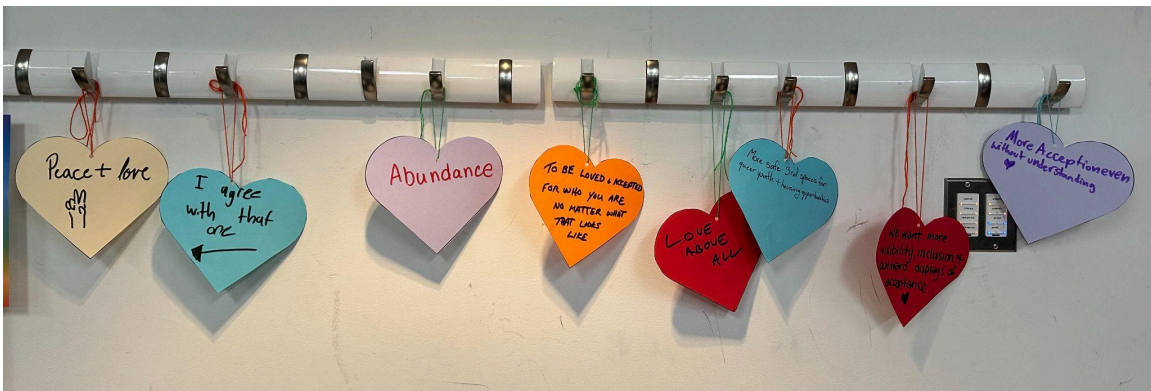 Peace + love
I agree
with that
one
Abundance
TO BE LOVED & ACCEPTED
FOR WHO YOU ARE
NO MATTER WHAT
THAT LOOKS
LIKE
LOVE
ABOVE
ALL
More safe 3rd spaces for
queer youth + housing opportunities
We want more
visibility, inclusion &
outward displays of
acceptance
More Acception even
without understanding